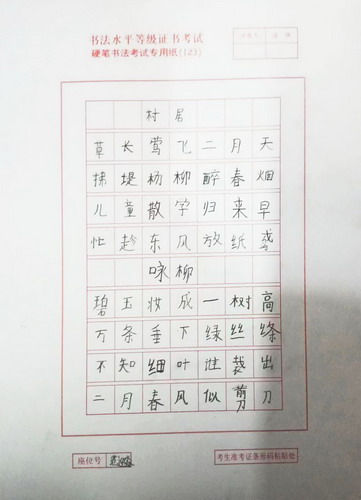 书法水平等级证书考试
硬笔书法考试专用纸(123)
村居
草长莺飞二月天
拂堤杨柳醉春烟
儿童散学归来早
忙趁东风放纸鸢
咏柳
碧玉妆成一树高
万条垂下绿丝绦
不知细叶谁裁出
二月春风似剪刀
座位号
考生准考证条形码粘贴处